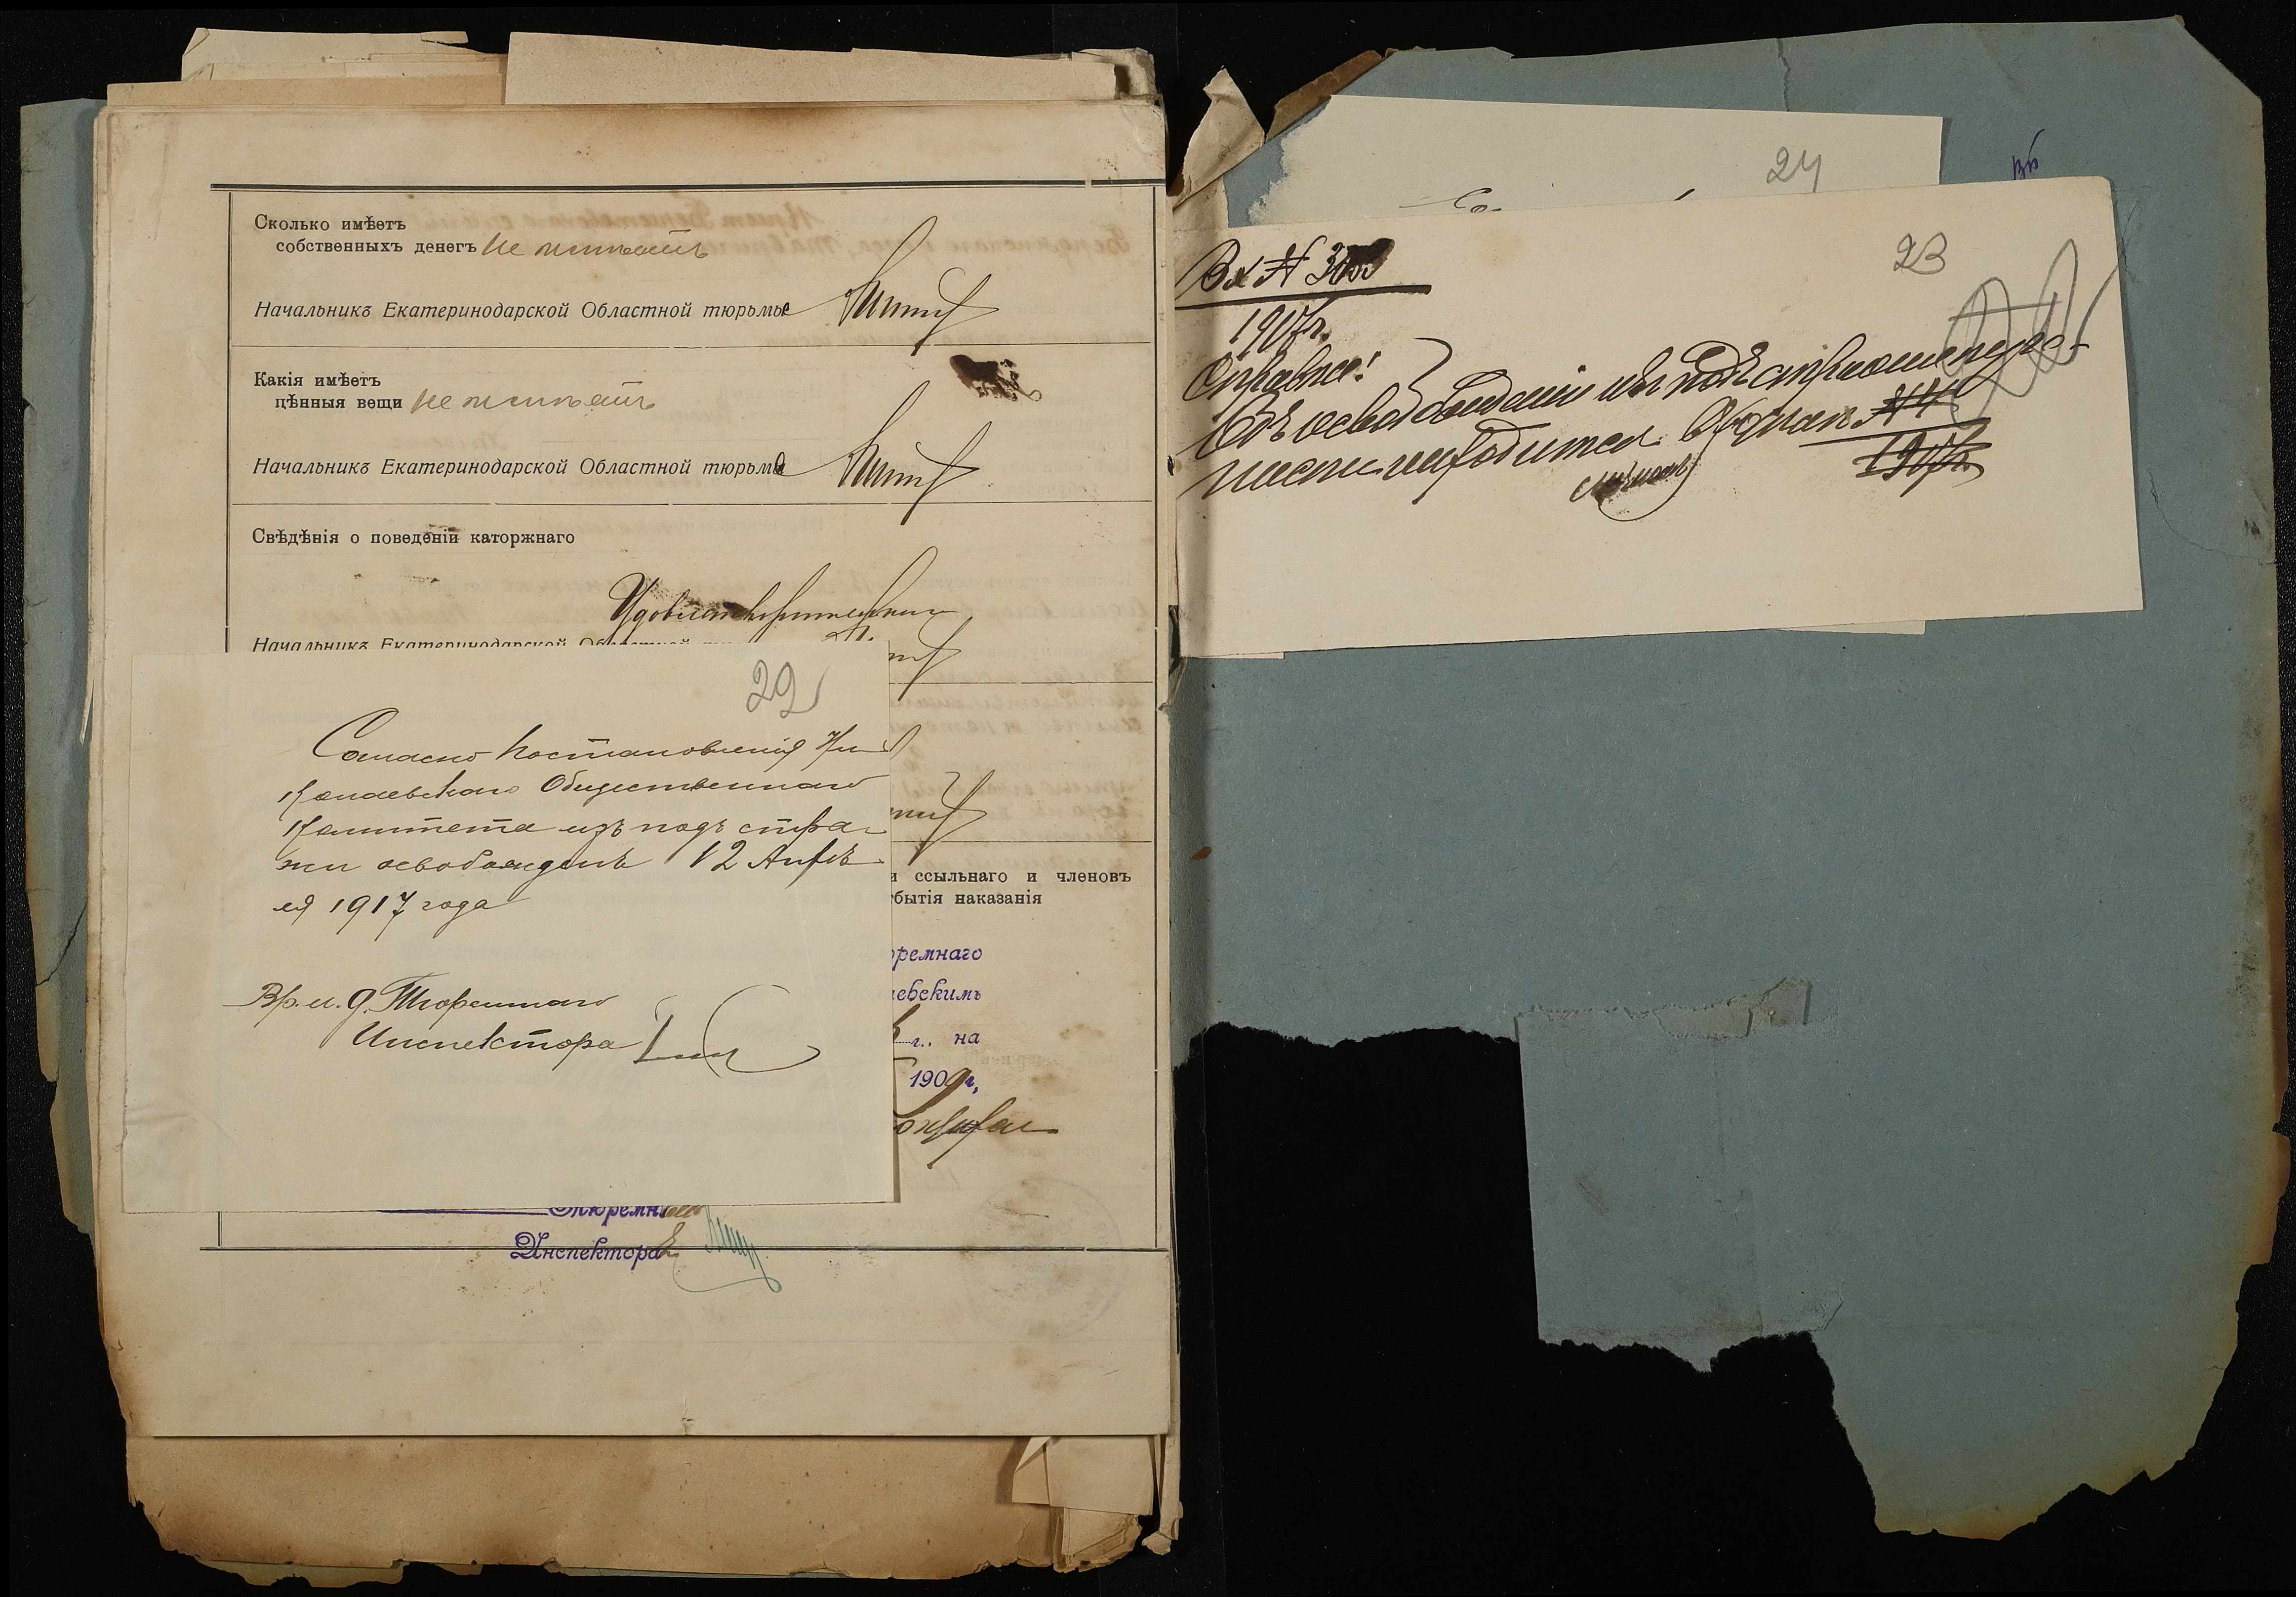 Сколько имѣетъ
собственныхъ денегъ не имѣетъ
Начальникъ Екатеринодарской Областной тюрьмы
Какія имѣетъ
цѣнныя вещи не имѣетъ
Начальникъ Екатеринодарской Областной тюрьмы
Свѣдѣнія о поведеніи каторжнаго
Удовлетворительнаго
Начальникъ Екатеринодарской
29
Согласно постановленія Ни
колаевскаго Общественнаго
Комитета изъ подъ стра-
жи освобожденъ 12 Апрѣ
ля 1917 года
Вр. и. д. Тюремнаго
Инспектора
и ссыльнаго и членовъ
бытія наказанія
ремнаго
евскимъ
г.. на
1909 г,
Тюремн
Инспектора
24
23
Вх №
1917 г.
Справка:
Объ освобожденіи изъ подъ стражи пере-
писка находится
1917 г.